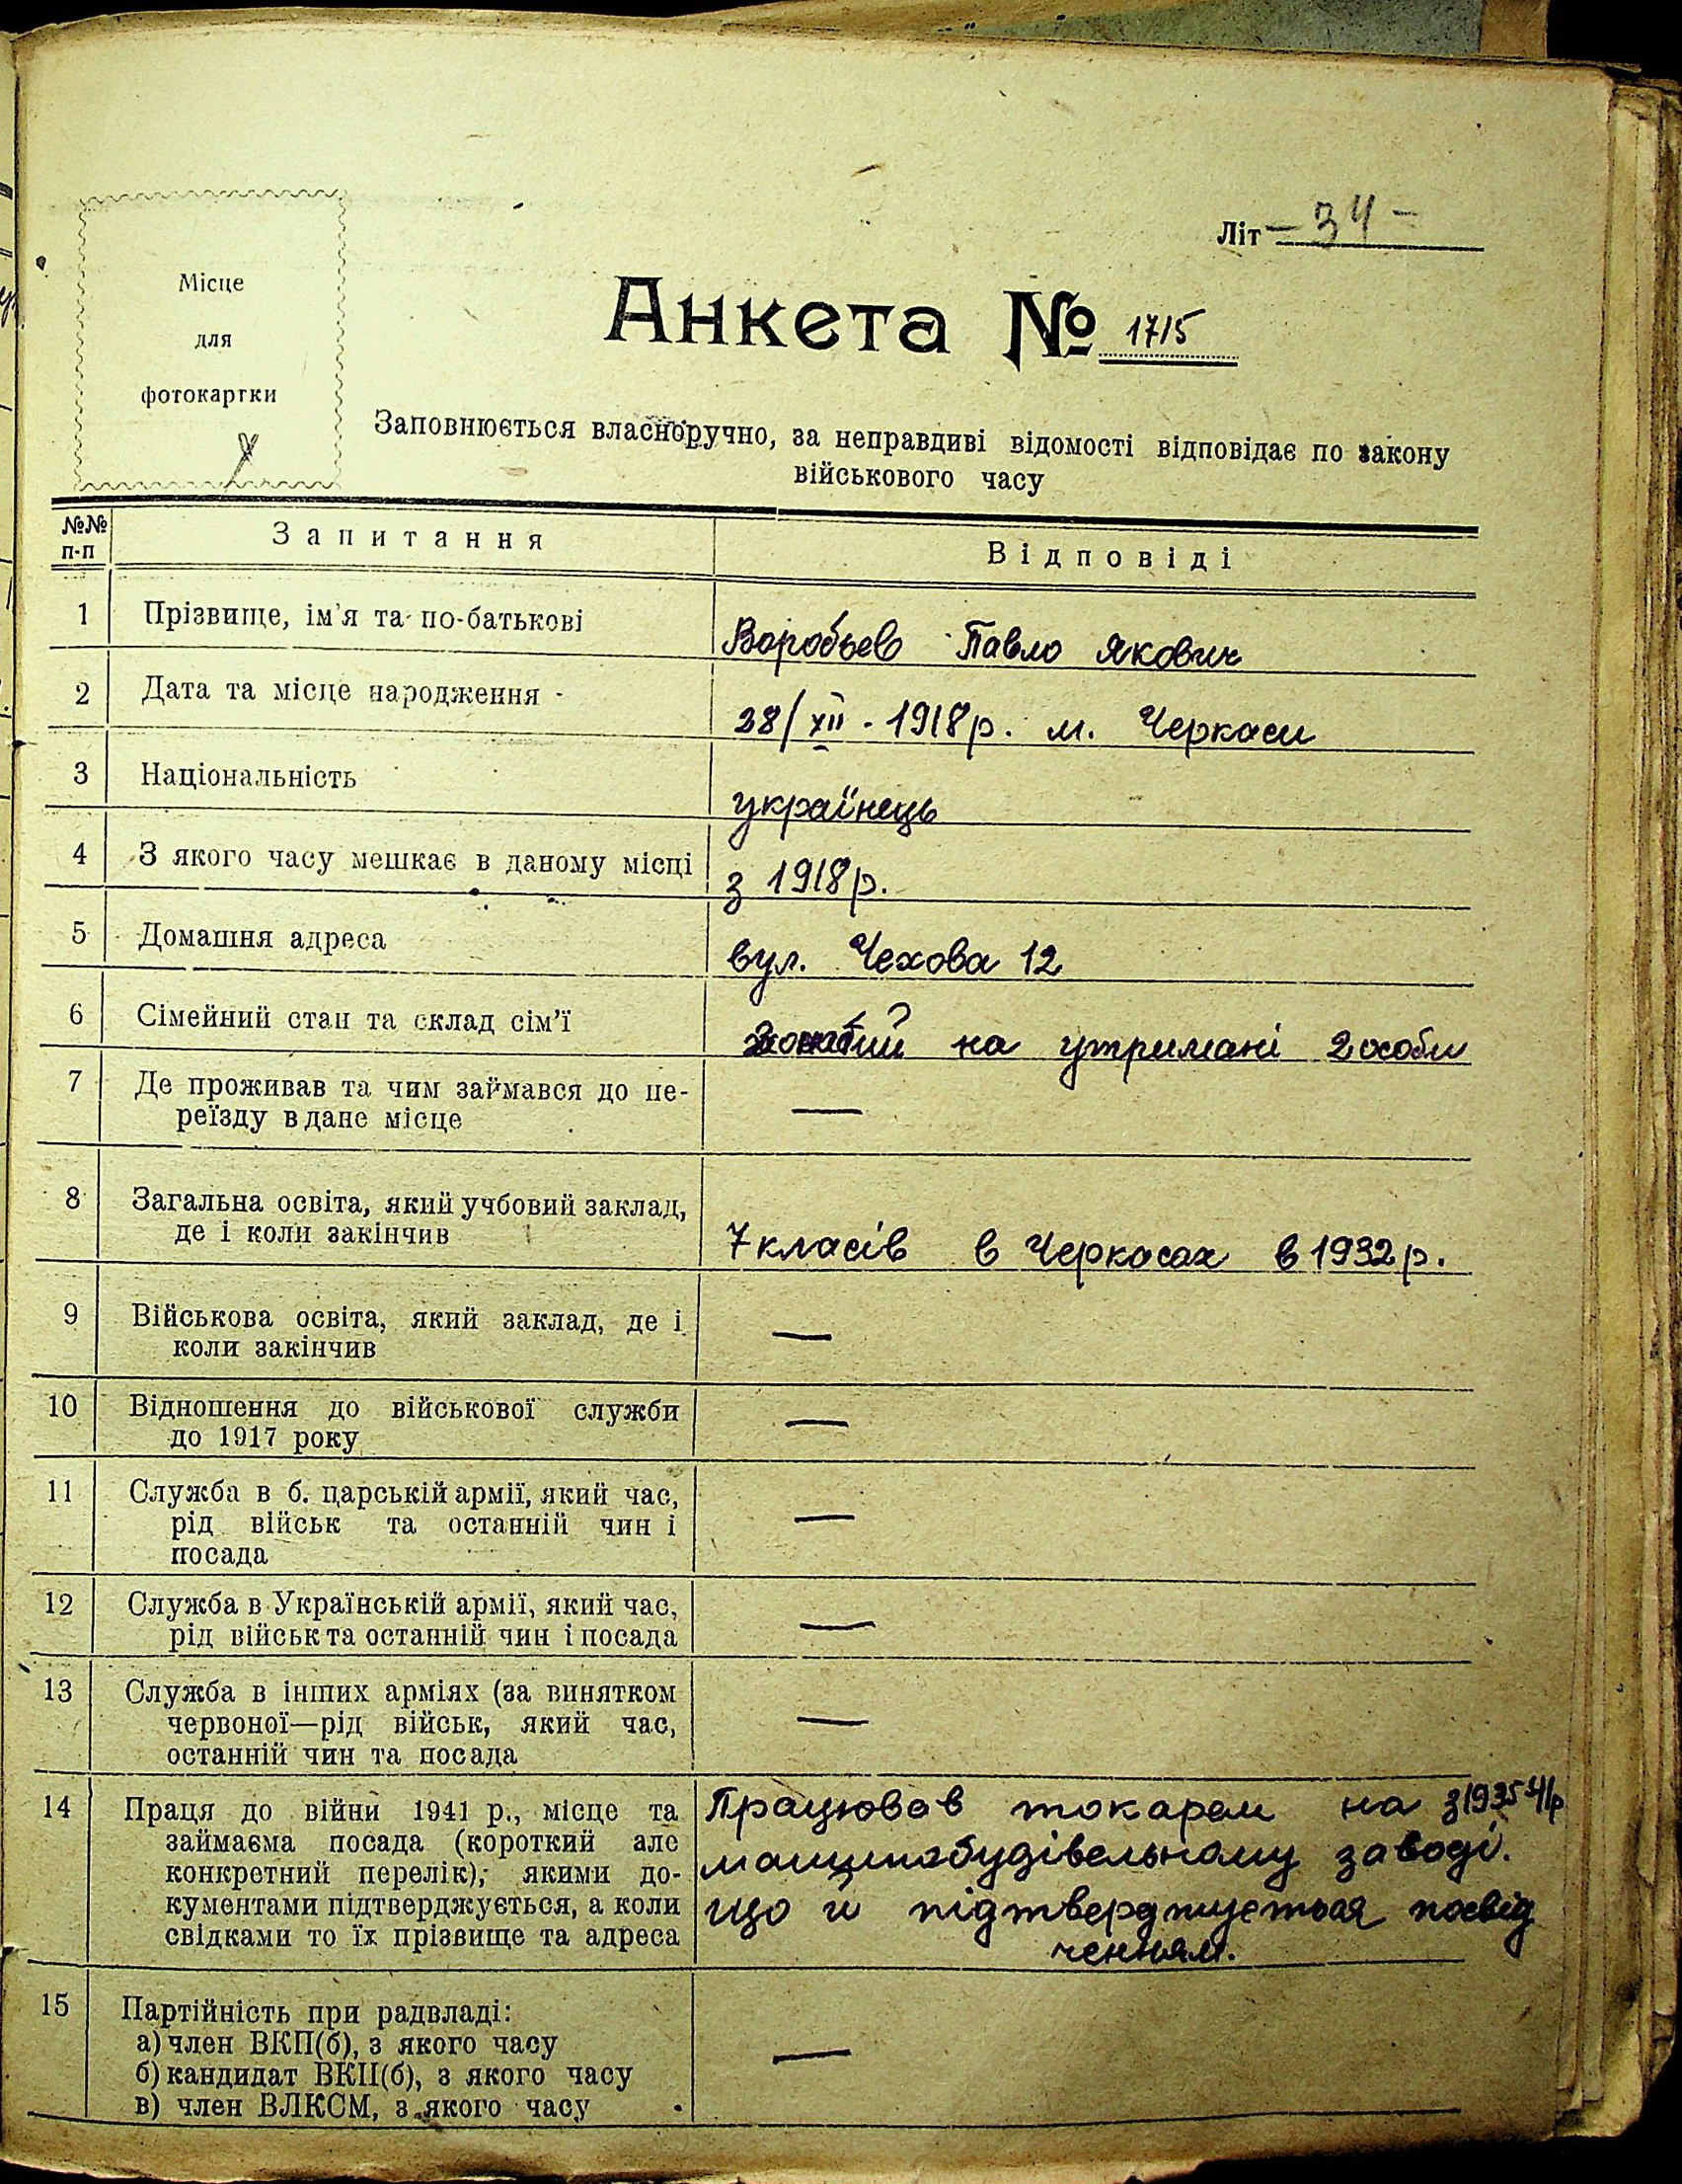 Літ - 34 -
Місце
для
фотокартки
Анкета № 1715
Заповнюється власноручно, за неправдиві відомості відповідає по закону
військового часу
№№ п-п Запитання Відповіді
1 Прізвище, ім'я та по-батькові Воробьев Павло Якович
2 Дата та місце народження 28/XII - 1918 р. м. Черкаси
3 Національність українець
4 З якого часу мешкає в даному місці з 1918 р.
5 Домашня адреса вул. Чехова 12
6 Сімейний стан та склад сім'ї на утримані 2 особи
7 Де проживав та чим займався до пе-
реїзду в дане місце —
8 Загальна освіта, який учбовий заклад,
де і коли закінчив 7 класів в Черкасах в 1932 р.
9 Військова освіта, який заклад, де і
коли закінчив —
10 Відношення до військової служби
до 1917 року —
11 Служба в б. царській армії, який час,
рід військ та останній чин і
посада —
12 Служба в Українській армії, який час,
рід військ та останній чин і посада —
13 Служба в інших арміях (за винятком
червоної—рід військ, який час,
останній чин та посада —
14 Праця до війни 1941 р., місце та
займаєма посада (короткий але
конкретний перелік), якими до-
кументами підтверджується, а коли
свідками то їх прізвище та адреса
Працював токарем на з 1935-41р
машинобудівельному заводі.
що й підтверджується посвід
ченням.
15 Партійність при радвладі:
а) член ВКП(б), з якого часу
б) кандидат ВКП(б), з якого часу
в) член ВЛКСМ, з якого часу —